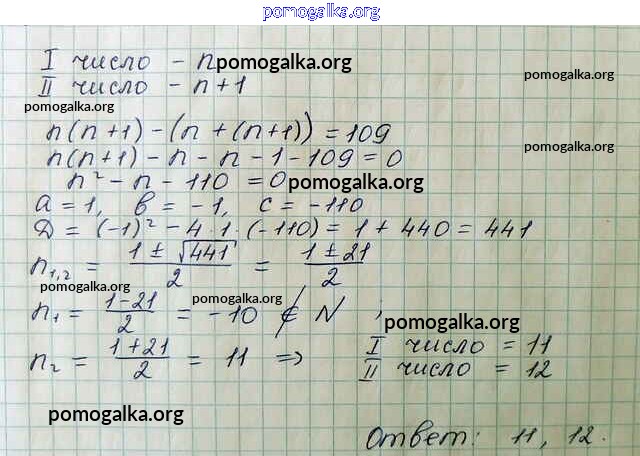 pomogalka.org
I число - n pomogalka.org
II число - n+1
pomogalka.org
pomogalka.org
n(n+1)-(n+(n+1))=109
n(n+1)-n-n-1-109=0
pomogalka.org
n²-n-110=0 pomogalka.org
a=1, в=-1, c=-110
D=(-1)²-4·1·(-110)=1+440=441
n₁,₂ = (1±√441)/2 = (1±21)/2
pomogalka.org
pomogalka.org
n₁ = (1-21)/2 = -10 ∉ N ;
pomogalka.org
n₂ = (1+21)/2 = 11 => I число = 11
II число = 12
pomogalka.org
Ответ: 11, 12.